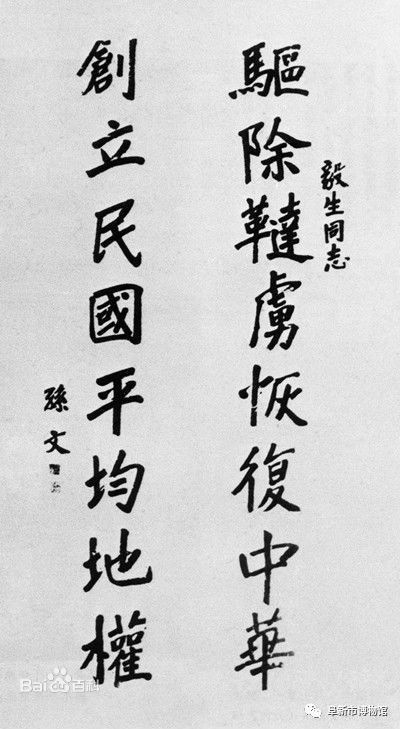 毅生同志
驅除韃虜恢復中華
創立民國平均地權
孫文
Bai百科
阜新市博物馆